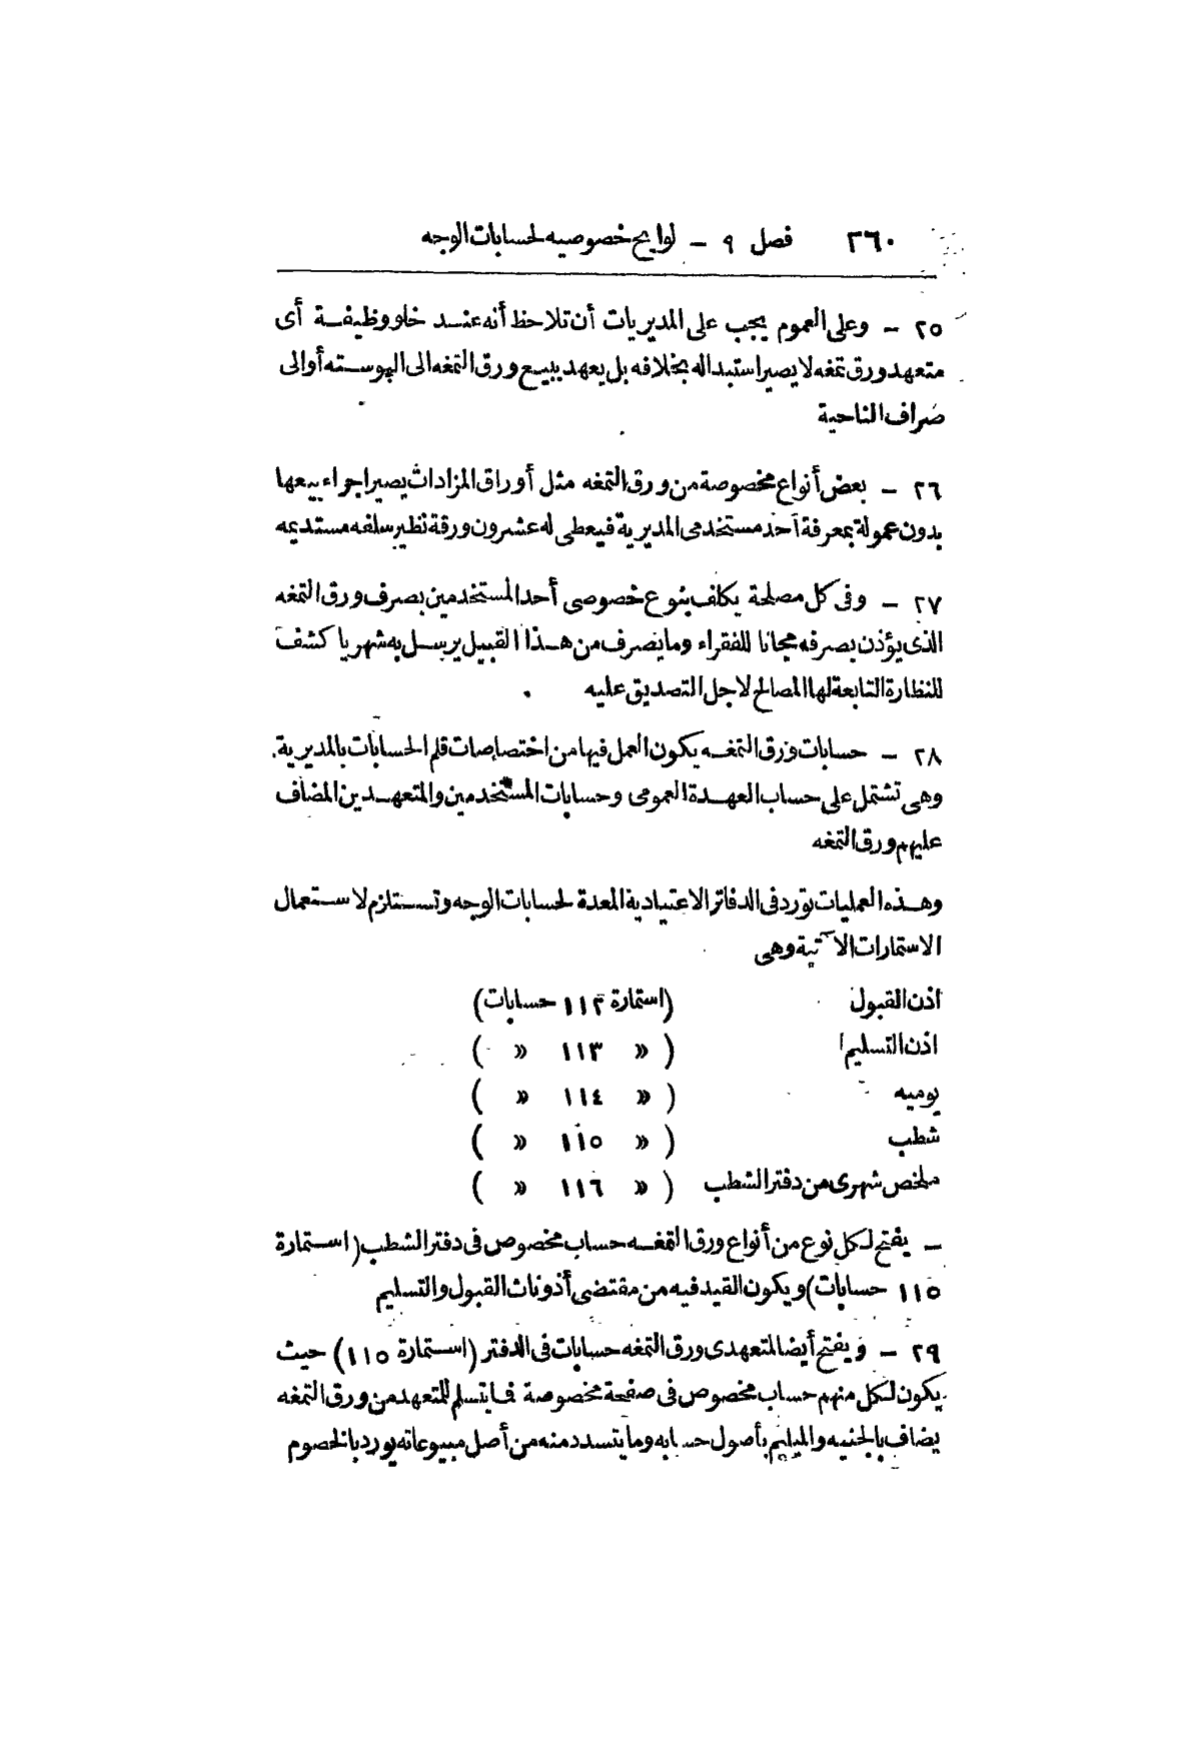 ٢٦٠ فصل ٩ – لوايح خصوصيه لحسابات الوجه
٢٥ – وعلى العموم يجب على المديريات أن تلاحظ أنه عند خلو وظيفة أى
متعهد ورق تمغه لا يصير استبداله بخلافه بل يعهد ببيع ورق التمغه الى البوسته أو الى
صراف الناحية
٢٦ – بعض أنواع مخصوصة من ورق التمغه مثل أوراق المزادات يصير اجراء بيعها
بدون عمولة بمعرفة أحد مستخدمى المديرية فيعطى له عشرون ورقة نظير سلفه مستديمه
٢٧ – وفى كل مصلحة يكلف بنوع خصوصى أحد المستخدمين بصرف ورق التمغه
الذى يؤذن بصرفه مجانا للفقراء وما يصرف من هذا القبيل يرسل به شهريا كشف
للنظارة التابعة لها المصالح لاجل التصديق عليه
٢٨ – حسابات ورق التمغه يكون العمل فيها من اختصاصات قلم الحسابات بالمديرية
وهى تشتمل على حساب العهدة العمومى وحسابات المستخدمين والمتعهدين المضاف
عليهم ورق التمغه
وهذه العمليات تورد فى الدفاتر الاعتيادية المعدة لحسابات الوجه وتستلزم لاستعمال
الاستمارات الآتية وهى
اذن القبول (استمارة ١١٢ حسابات)
اذن التسليم ( « ١١٣ « )
يوميه ( « ١١٤ « )
شطب ( « ١١٥ « )
ملخص شهرى من دفتر الشطب ( « ١١٦ « )
– يفتح لكل نوع من أنواع ورق التمغه حساب مخصوص فى دفتر الشطب (استمارة
١١٥ حسابات) ويكون القيد فيه من مقتضى أذونات القبول والتسليم
٢٩ – ويفتح أيضا لمتعهدى ورق التمغه حسابات فى الدفتر (استمارة ١١٥) حيث
يكون لكل منهم حساب مخصوص فى صفحة مخصوصة فما يتسلم للمتعهد من ورق التمغه
يضاف بالجنيه والمليم بأصول حسابه وما يتسدد منه من أصل مبيوعاته يورد بالخصوم